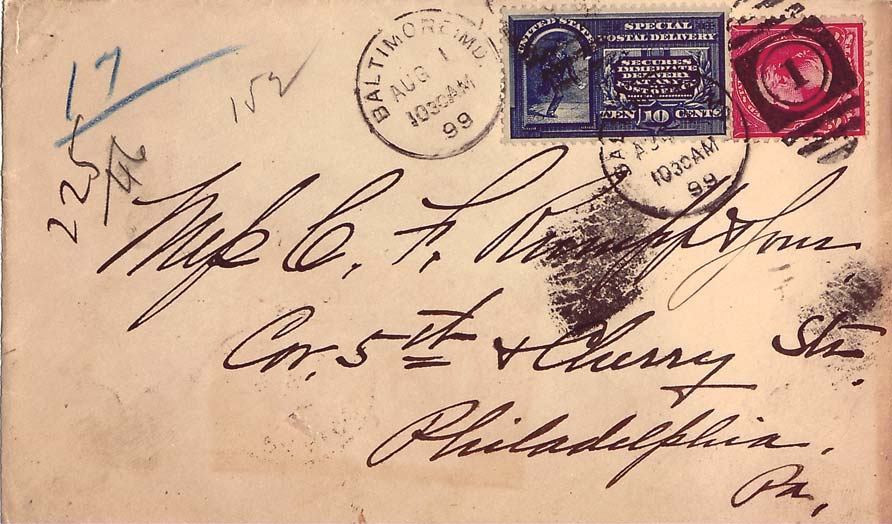 17
152
225
46
BALTIMORE, MD.
AUG 1
1030AM
99
UNITED STATES
SPECIAL
POSTAL DELIVERY
SECURES
IMMEDIATE
DELIVERY
AT ANY
POST OFFICE
TEN 10 CENTS
1
1030AM
99
Mess C. F. Rumpf & Sons
Cor. 5th & Cherry Sts.
Philadelphia,
Pa,